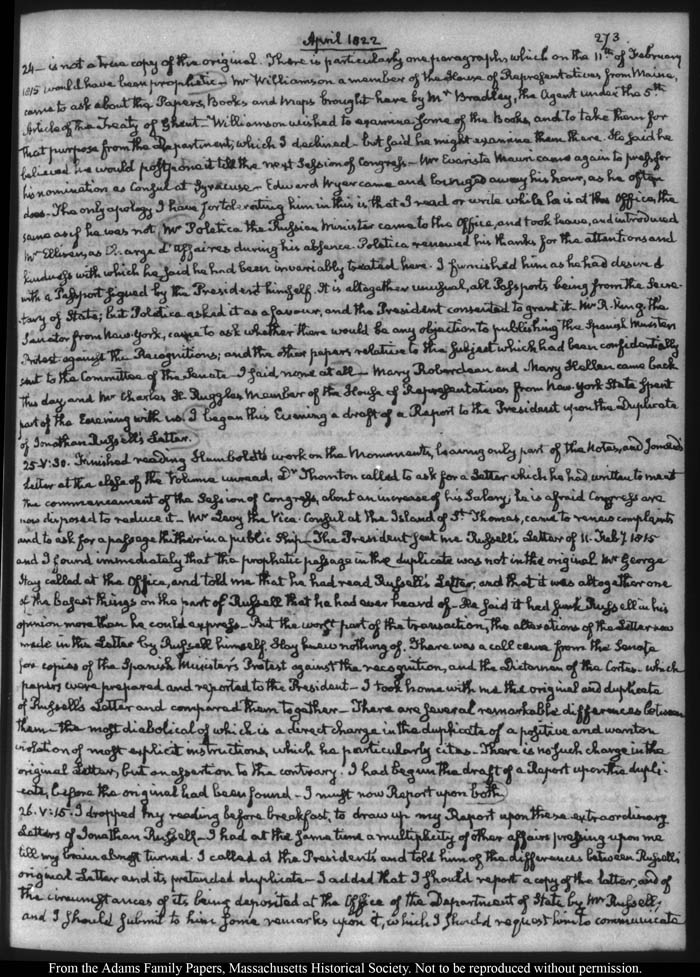 April 1822
273
24— is not a true copy of the original. There is particularly one paragraph which on the 11th of February
1815 would have been prophetic— Mr Williamson a member of the House of Representatives from Maine,
came to ask about the Papers, Books and Maps brought here by Mr Bradley, the Agent under the 5th
Article of the Treaty of Ghent— Williamson wished to examine some of the Books, and to take them for
that purpose from the Department, which I declined— but said he might examine them there. He said he
believed he would postpone it till the next Session of Congress— Mr Evarista Meawn came again to press for
his nomination as Consul at Syracuse— Edward Wyer came and lounged away his hour, as he often
does— The only apology I have for tolerating him in this is that I read or write while he is at the Office, the
same as if he was not. Mr Poletica the Russian Minister came to the Office, and took leave, and introduced
Mr Ellisen, as Chargé d'Affaires during his absence. Poletica renewed his thanks for the attentions and
kindness with which he said he had been invariably treated here. I furnished him as he had desired
with a Passport signed by the President himself. It is altogether unusual, all Passports being from the Secre-
tary of State; but Poletica asked it as a favour, and the President consented to grant it— Mr R. King the
Senator from New-York, came to ask whether there would be any objection to publishing the Spanish Minister's
Protest against the Recognitions; and the other papers relative to the subject which had been confidentially
sent to the Committee of the Senate— I said none at all— Mary Roberdeau and Mary Hellen came back
this day and Mr Charles H. Ruggles Member of the House of Representatives from New-York State spent
part of the Evening with us. I began this Evening a draft of a Report to the President upon the Duplicate
of Jonathan Russell's Letter.
25. V:30. Finished reading Humboldt's work on the Monuments, leaving only part of the Notes, and Jomard's
Letter at the close of the Volume unread. Dr Thornton called to ask for a Letter which he had written to me at
the commencement of the Session of Congress, about an increase of his Salary; he is afraid Congress are
now disposed to reduce it— Mr Levy the Vice-Consul at the Island of St Thomas, came to renew complaints
and to ask for a passage thither in a public Ship— The President sent me Russell's Letter of 11. Feby 1815
and I found immediately that the prophetic passage in the duplicate was not in the original. Mr George
Hay called at the Office, and told me that he had read Russell's Letter, and that it was altogether one
of the basest things on the part of Russell that he had ever heard of— He said it had sunk Russell in his
opinion more than he could express— But the worst part of the transaction, the alterations of the Letter now
made in the Letter by Russell himself Hay knew nothing of. There was a call came from the Senate
for copies of the Spanish Minister's Protest against the recognition, and the Dictamen of the Cortes— which
papers were prepared and reported to the President— I took home with me the original and duplicate
of Russell's Letter and compared them together— There are several remarkable differences between
them— the most diabolical of which is a direct charge in the duplicate of a positive and wanton
violation of most explicit instructions, which he particularly cites— There is no such charge in the
original Letter, but an assertion to the contrary. I had begun the draft of a Report upon the dupli-
cate, before the original had been found— I must now Report upon both.
26. V:15. I dropped my reading before breakfast, to draw up my Report upon these extraordinary
Letters of Jonathan Russell— I had at the same time a multiplicity of other affairs pressing upon me
till my brain almost turned. I called at the President's and told him of the differences between Russell's
original Letter and its pretended duplicate— I added that I should report a copy of the latter, and of
the circumstances of its being deposited at the Office of the Department of State by Mr Russell;
and I should submit to him some remarks upon it, which I should request him to communicate
From the Adams Family Papers, Massachusetts Historical Society. Not to be reproduced without permission.